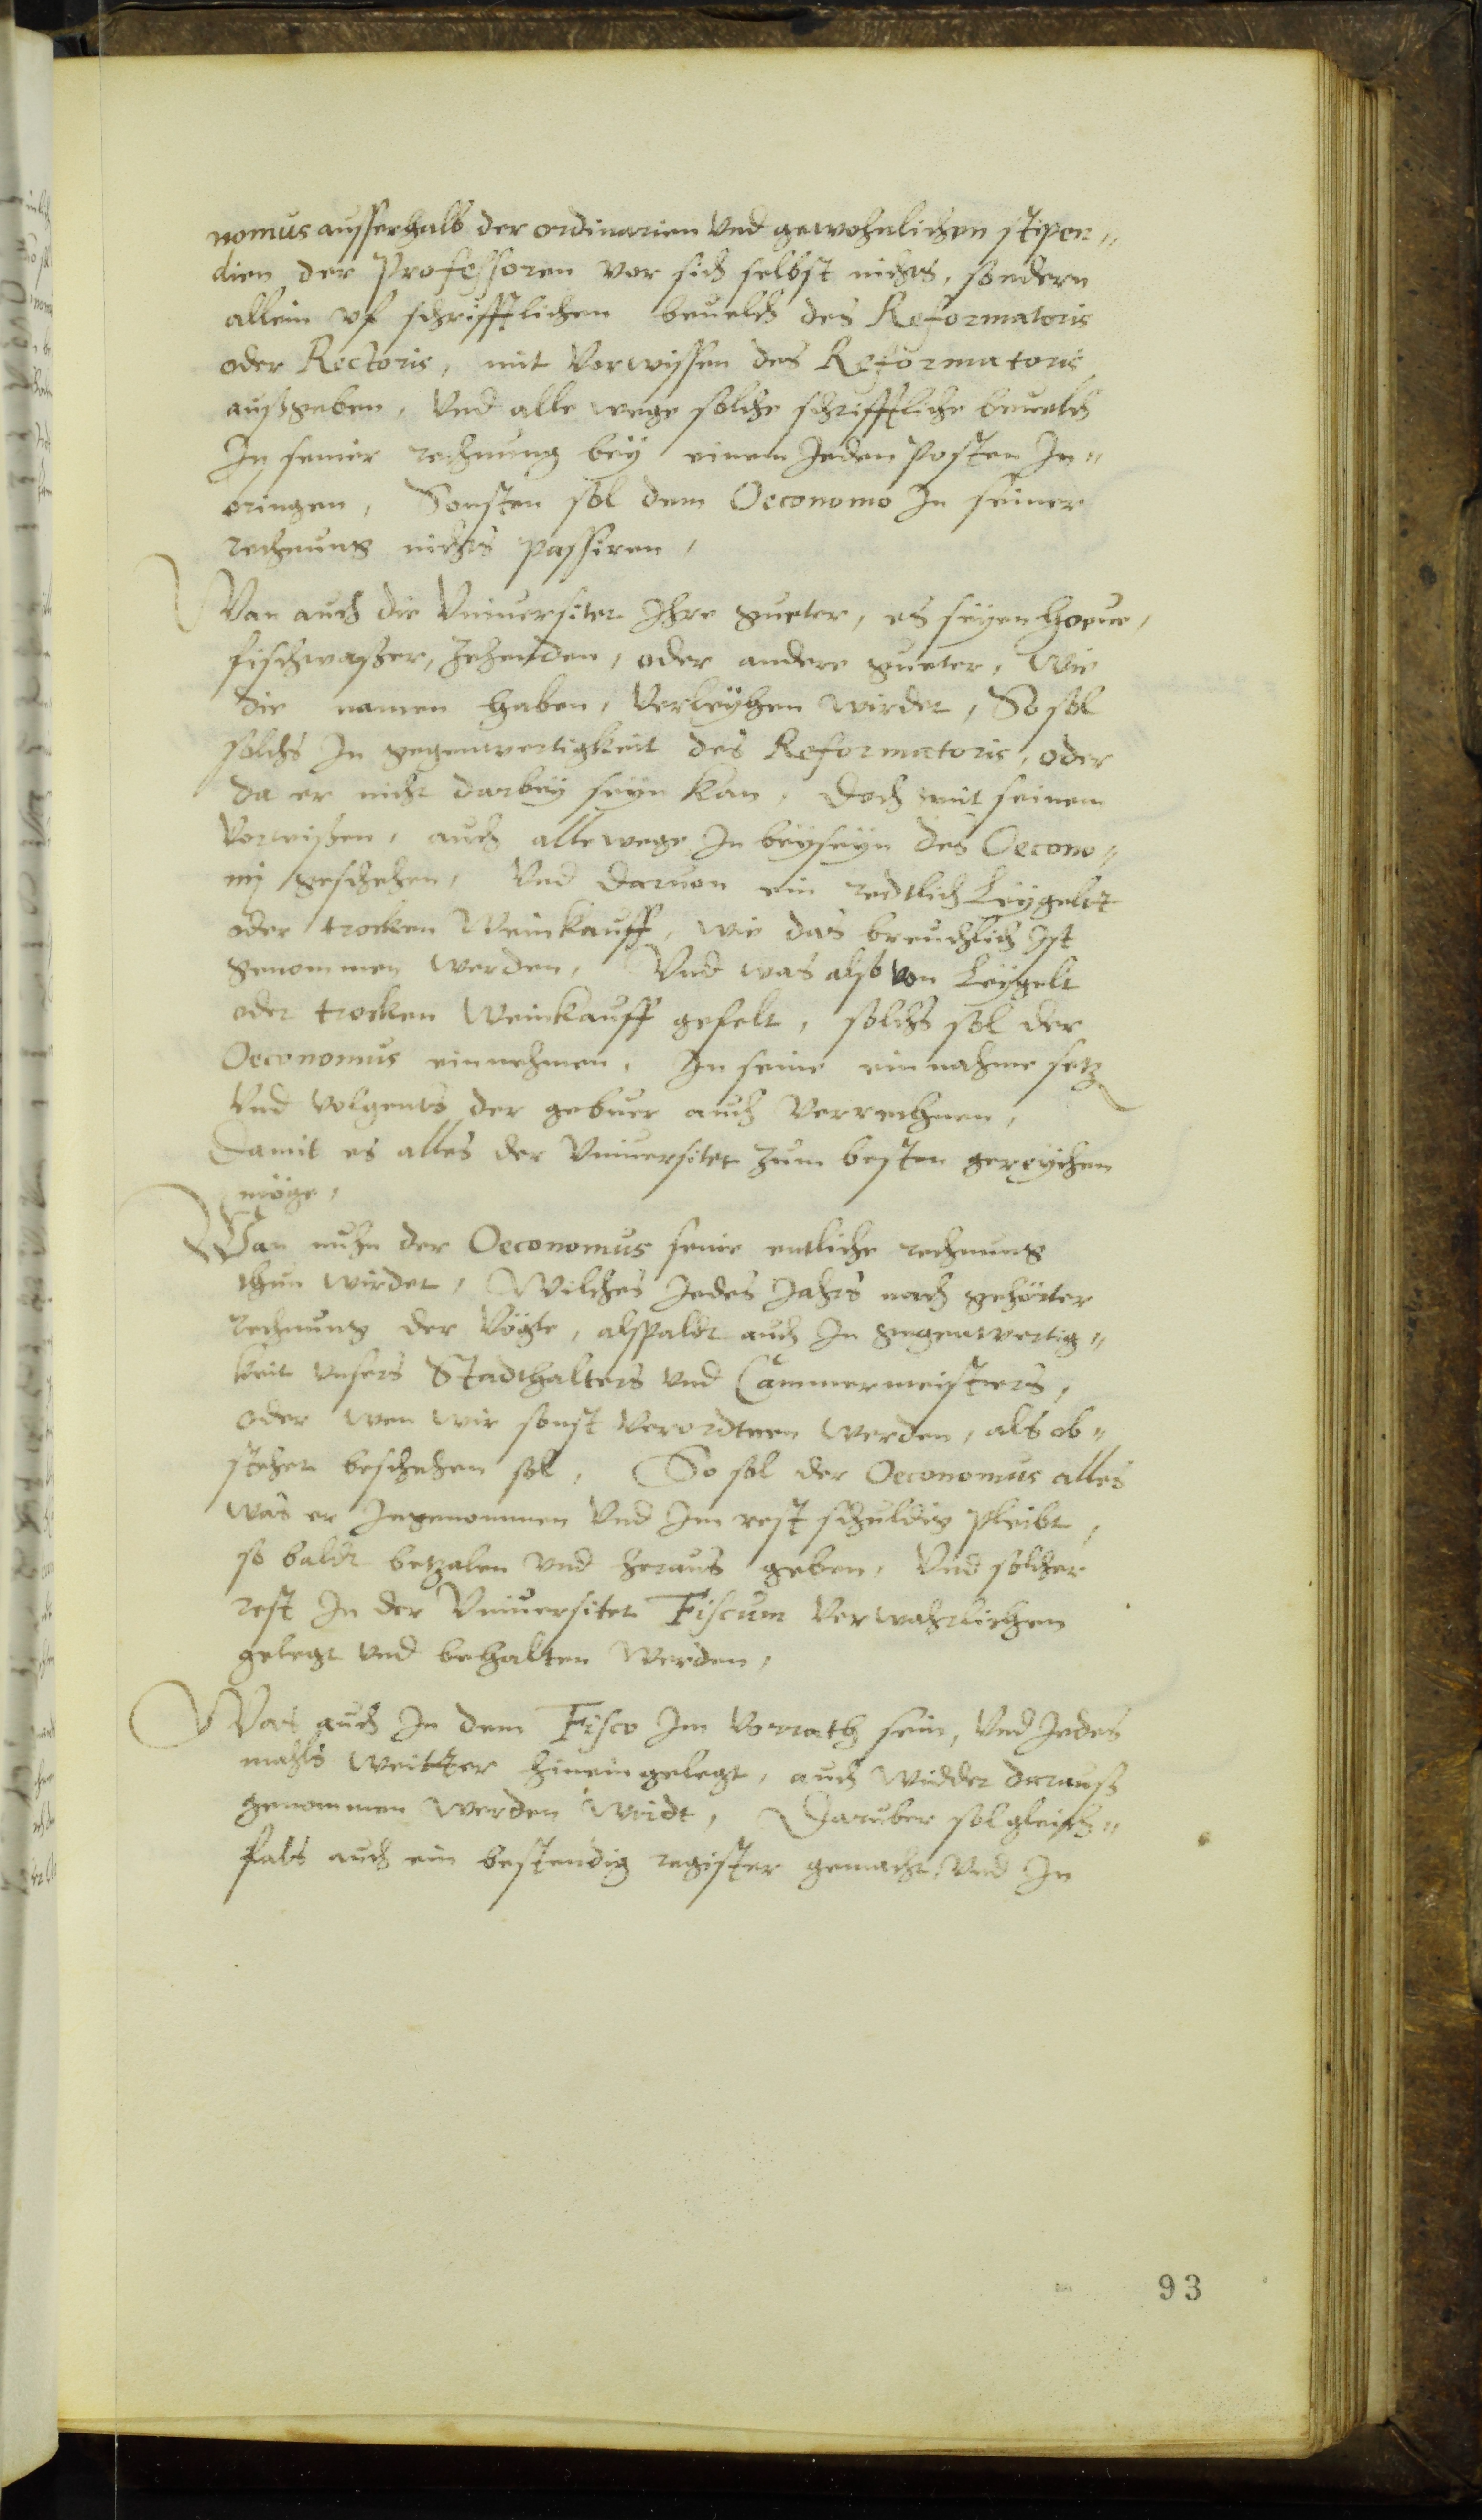 nomus ausserhalb der ordinarien vnd gewohnlichen stipen„
dien der Professoren vor sich selbst nichts, sondern
allein vf schrifftlichen beuelch des Reformatoris
oder Rectoris, mit vorwissen des Reformatoris
außgeben, Vnd alle wege solche schrifftliche beuelch
In seiner rechnung bey einem Jeden Posten In„
bringen, Sonsten sol dem Oeconomo In seiner
rechnung nichts passiren,
Wan auch die Vniuersitet Ihre gueter, es seyen hoeue,
fischwaßer, Zehenden, oder andere gueter, Wie
die namen haben, Verleyhen wirdet, So sol
solchs In gegenwertigkeit des Reformatoris, oder
da er nicht darbey seyn kan, Doch mit seinem
Vorwißen, auch allewege In beyseyn des Oecono„
mj geschehen, Vnd daruon ein redtlich Leygelt
oder trocken Weinkauff, wie das breuchlich Ist
genommen werden, Vnd was also von Leygelt
oder trocken Weinkauff gefelt, solchs sol der
Oeconomus einnehmen, In seine einnahme setzen
Vnd volgents der gebuer auch Verrechnen,
Damit es alles der Vniuersitet zum besten gereychen
möge,
Wan nuhn der Oeconomus seine entliche rechnung
thun wirdet, Wilches Jedes Jahrs nach gehörter
rechnung der Vögte, alspaldt auch In gegenwertig„
keit vnsers Stadthalters vnd Cammermeisters,
oder wen wir sonst Verordtnen werden, als ob„
stehet beschehen sol, So sol der Oeconomus alles
was er Ingenommen Vnd Im rest schuldig pleibt,
so baldt betzalen vnd heraus geben, Vnd solcher
rest In der Vniuersitet Fiscum Verwahrlichen
gelegt vnd behalten werden,
Was auch In dem Fisco Im Vorrath sein, Vnd Jedes
mahls weitter hinein gelegt, auch widder darauß
genommen werden wirdt, Daruber sol gleich„
fals auch ein bestendig register gemacht, Vnd In
93